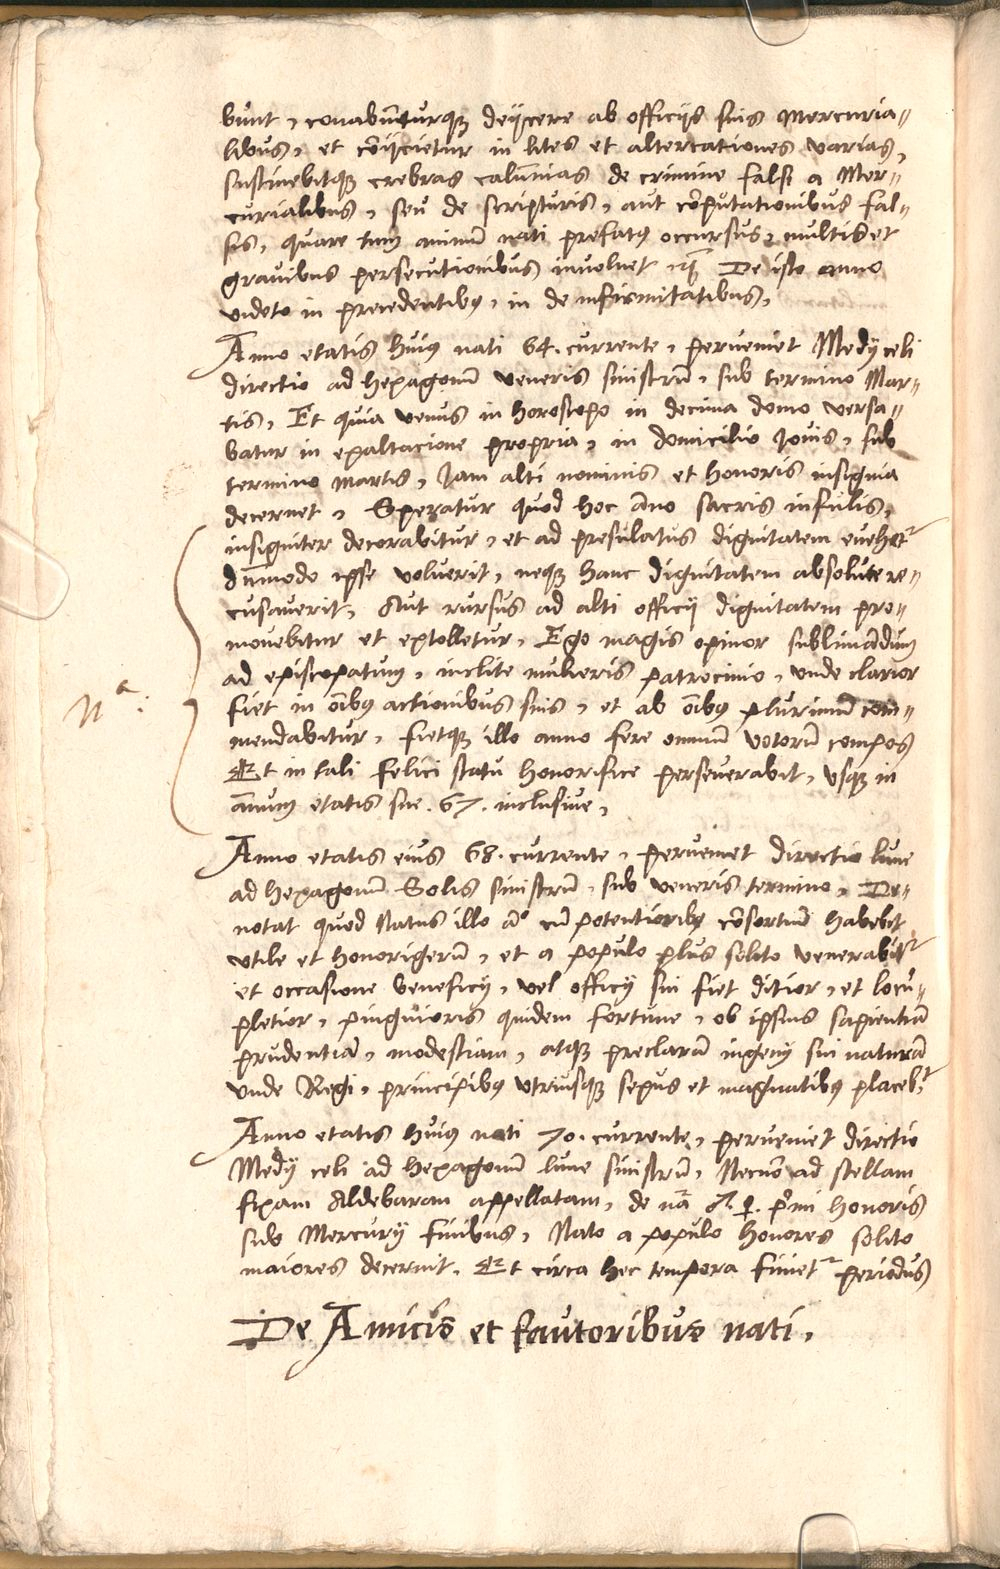 bunt, conabunturq₃ deijcere ab officijs suis Mercuria=
libus, et cōijcietur in lites et altercationes varias,
sustinebitq₃ crebras calūnias de crimine falsi a Mer=
curialibus, seu de scripturis, aut cōputationibus fal=
sis, quare tum animū nati prefatꝰ occursus, multis et
gravibus persecutionibus involuet. De isto anno
videto in precedentibꝰ, in de infirmitatibus,
Anno etatis huiꝰ nati 64. currente, perveniet Medij celi
directio ad hexagonū veneris sinistrū, sub termino Mar=
tis, Et quia venus in horoscopo in decima domo versa=
batur in exaltacione propria, in domicilio Jovis, sub
termino martis, Jam alti nominis et honoris insignia
decernet, Speratur quod hoc āno sacris infulis,
insigniter decorabitur, et ad presulatus dignitatem evehetr
dūmodo ipse voluerit, neq₃ hanc dignitatem absolute re=
cusaverit, Aut rursus ad alti officij dignitatem pro=
movebitur et extolletur, Ego magis opinor sublimādum
ad episcopatum, inclite mulieris patrocinio, unde clarior
Na:
fiet in oībꝰ actionibus suis, et ab oībꝰ plurimū com=
mendabitur, fietq₃ illo anno fere omniū votorū compos
Et in tali felici statu honorifice perseverabit, usq₃ in
ānum etatis sue .67. inclusive,
Anno etatis eius 68. currente, perveniet directio lune
ad hexagonū Solis sinistrū, sub veneris termino, De=
notat quod Natus illo āo cū potentioribꝰ cōsortiū habebit
utile et honorigerū, et a populo plus solito venerabitr
et occasione beneficij, vel officij sui fiet ditior, et locu=
pletior, pinguioris quidem fortune, ob ipsius sapientiā
prudentiā, modestiam, atq₃ preclarā ingenij sui naturā
unde Regi, principibꝰ utriusq₃ sexus et magnatibꝰ placebit
Anno etatis huiꝰ nati 70. currente, perveniet directio
Medij celi ad hexagonū lune sinistrū, Necnō ad stellam
fixam Aldebaran appellatam, de nā ♂. ♀. p̄mi honoris
sub Mercurij finibus, Nato a populo honores solito
maiores decernit. Et circa hec tempora finietr periodus
De Amicis et fautoribus nati,